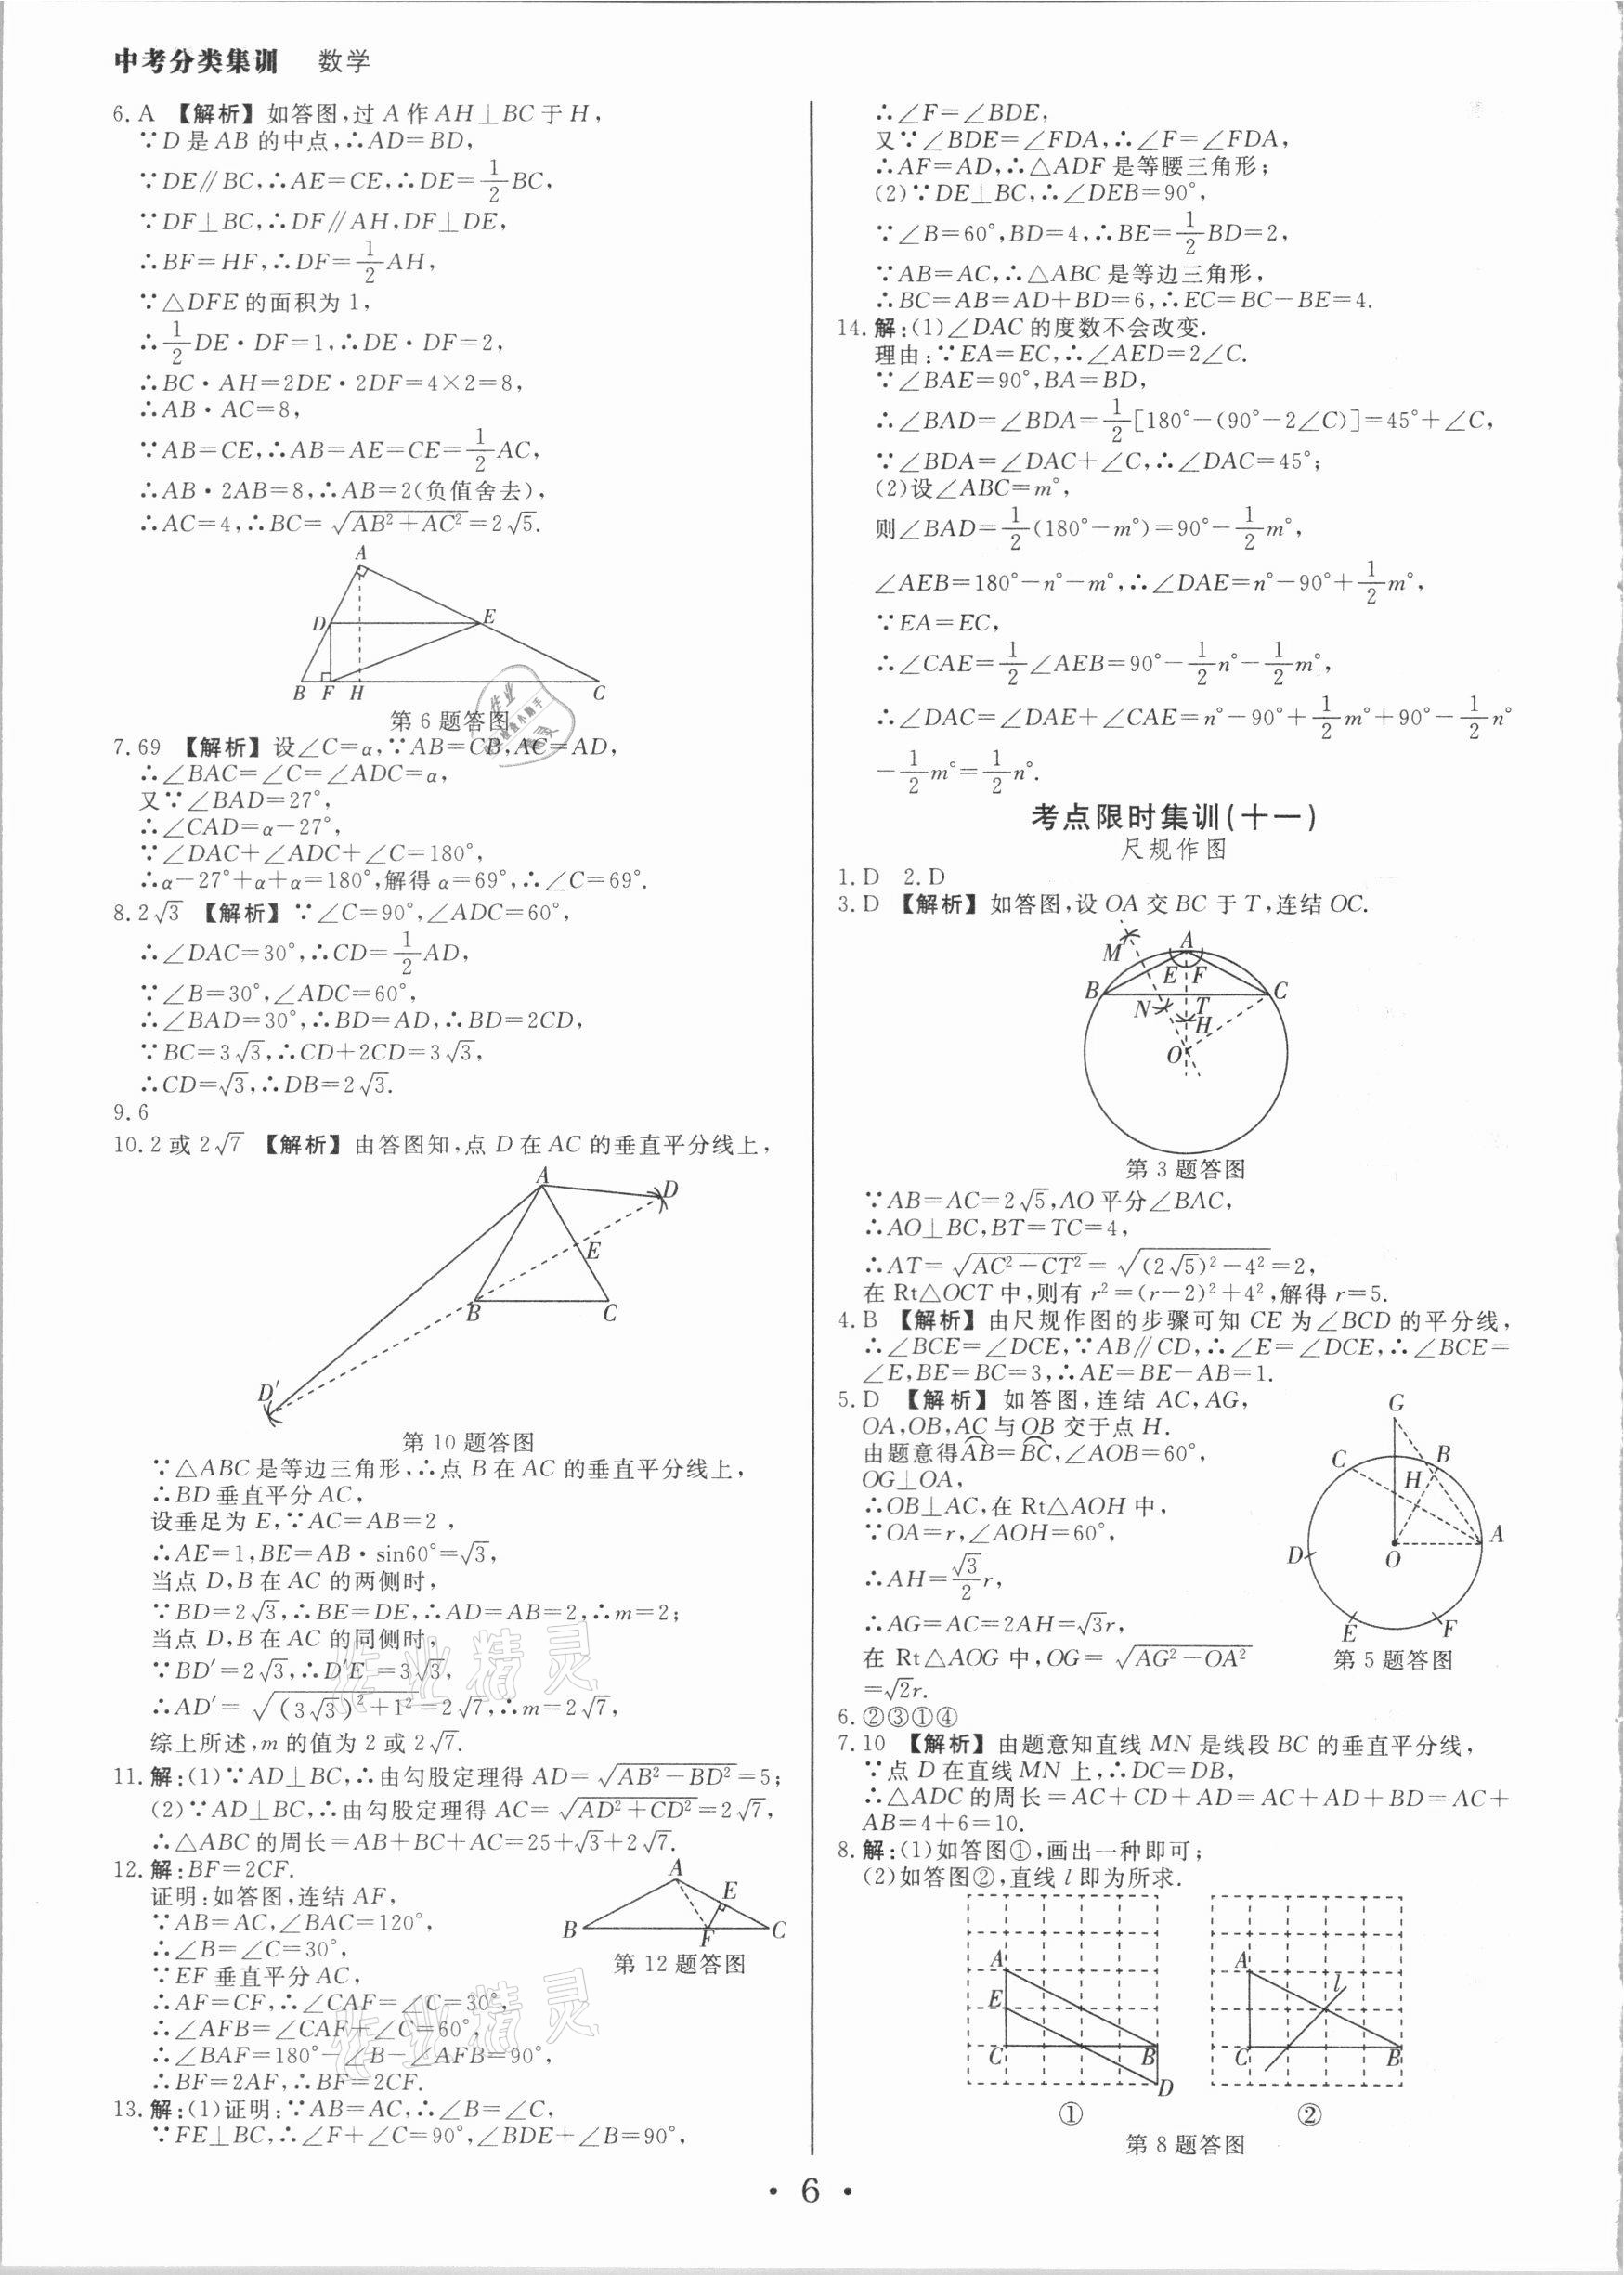 中考分类集训 数学
6. A 【解析】如答图,过 A 作 AH⊥BC 于 H,
∵D 是 AB 的中点,∴AD=BD,
∵DE∥BC,∴AE=CE,∴DE=1/2BC,
∵DF⊥BC,∴DF∥AH,DF⊥DE,
∴BF=HF,∴DF=1/2AH,
∵△DFE 的面积为 1,
∴1/2DE·DF=1,∴DE·DF=2,
∴BC·AH=2DE·2DF=4×2=8,
∴AB·AC=8,
∵AB=CE,∴AB=AE=CE=1/2AC,
∴AB·2AB=8,∴AB=2(负值舍去),
∴AC=4,∴BC=√(AB²+AC²)=2√5.
A
D E
B F H C
第 6 题答图
7. 69 【解析】设∠C=α,∵AB=CB,AC=AD,
∴∠BAC=∠C=∠ADC=α,
又∵∠BAD=27°,
∴∠CAD=α-27°,
∵∠DAC+∠ADC+∠C=180°,
∴α-27°+α+α=180°,解得 α=69°,∴∠C=69°.
8. 2√3 【解析】∵∠C=90°,∠ADC=60°,
∴∠DAC=30°,∴CD=1/2AD,
∵∠B=30°,∠ADC=60°,
∴∠BAD=30°,∴BD=AD,∴BD=2CD,
∵BC=3√3,∴CD+2CD=3√3,
∴CD=√3,∴DB=2√3.
9. 6
10. 2 或 2√7 【解析】由答图知,点 D 在 AC 的垂直平分线上,
A
D
E
B C
D′
第 10 题答图
∵△ABC 是等边三角形,∴点 B 在 AC 的垂直平分线上,
∴BD 垂直平分 AC,
设垂足为 E,∵AC=AB=2 ,
∴AE=1,BE=AB·sin60°=√3,
当点 D,B 在 AC 的两侧时,
∵BD=2√3,∴BE=DE,∴AD=AB=2,∴m=2;
当点 D,B 在 AC 的同侧时,
∵BD′=2√3,∴D′E =3√3,
∴AD′=√((3√3)²+1²)=2√7,∴m=2√7,
综上所述,m 的值为 2 或 2√7.
11. 解:(1)∵AD⊥BC,∴由勾股定理得 AD=√(AB²-BD²)=5;
(2)∵AD⊥BC,∴由勾股定理得 AC=√(AD²+CD²)=2√7,
∴△ABC 的周长=AB+BC+AC=25+√3+2√7.
12. 解:BF=2CF.
证明:如答图,连结 AF,
∵AB=AC,∠BAC=120°,
∴∠B=∠C=30°,
∵EF 垂直平分 AC,
∴AF=CF,∴∠CAF=∠C=30°,
∴∠AFB=∠CAF+∠C=60°,
∴∠BAF=180°-∠B-∠AFB=90°,
∴BF=2AF,∴BF=2CF.
A
E
B F C
第 12 题答图
13. 解:(1)证明:∵AB=AC,∴∠B=∠C,
∵FE⊥BC,∴∠F+∠C=90°,∠BDE+∠B=90°,
∴∠F=∠BDE,
又∵∠BDE=∠FDA,∴∠F=∠FDA,
∴AF=AD,∴△ADF 是等腰三角形;
(2)∵DE⊥BC,∴∠DEB=90°,
∵∠B=60°,BD=4,∴BE=1/2BD=2,
∵AB=AC,∴△ABC 是等边三角形,
∴BC=AB=AD+BD=6,∴EC=BC-BE=4.
14. 解:(1)∠DAC 的度数不会改变.
理由:∵EA=EC,∴∠AED=2∠C.
∵∠BAE=90°,BA=BD,
∴∠BAD=∠BDA=1/2[180°-(90°-2∠C)]=45°+∠C,
∵∠BDA=∠DAC+∠C,∴∠DAC=45°;
(2)设∠ABC=m°,
则∠BAD=1/2(180°-m°)=90°-1/2m°,
∠AEB=180°-n°-m°,∴∠DAE=n°-90°+1/2m°,
∵EA=EC,
∴∠CAE=1/2∠AEB=90°-1/2n°-1/2m°,
∴∠DAC=∠DAE+∠CAE=n°-90°+1/2m°+90°-1/2n°
-1/2m°=1/2n°.
考点限时集训(十一)
尺规作图
1. D 2. D
3. D 【解析】如答图,设 OA 交 BC 于 T,连结 OC.
M A
E F
B C
N T
H
O
第 3 题答图
∵AB=AC=2√5,AO 平分∠BAC,
∴AO⊥BC,BT=TC=4,
∴AT=√(AC²-CT²)=√((2√5)²-4²)=2,
在 Rt△OCT 中,则有 r²=(r-2)²+4²,解得 r=5.
4. B 【解析】由尺规作图的步骤可知 CE 为∠BCD 的平分线,
∴∠BCE=∠DCE,∵AB∥CD,∴∠E=∠DCE,∴∠BCE=
∠E,BE=BC=3,∴AE=BE-AB=1.
5. D 【解析】如答图,连结 AC,AG,
OA,OB,AC 与 OB 交于点 H.
由题意得⌒AB=⌒BC,∠AOB=60°,
OG⊥OA,
∴OB⊥AC,在 Rt△AOH 中,
∵OA=r,∠AOH=60°,
∴AH=√3/2r,
∴AG=AC=2AH=√3r,
在 Rt△AOG 中,OG=√(AG²-OA²)
=√2r.
G
C B
H
A
D O
E F
第 5 题答图
6. ②③①④
7. 10 【解析】由题意知直线 MN 是线段 BC 的垂直平分线,
∵点 D 在直线 MN 上,∴DC=DB,
∴△ADC 的周长=AC+CD+AD=AC+AD+BD=AC+
AB=4+6=10.
8. 解:(1)如答图①,画出一种即可;
(2)如答图②,直线 l 即为所求.
A
E
C B
D
①
A
l
C B
②
第 8 题答图
· 6 ·
作业精灵
作业精灵